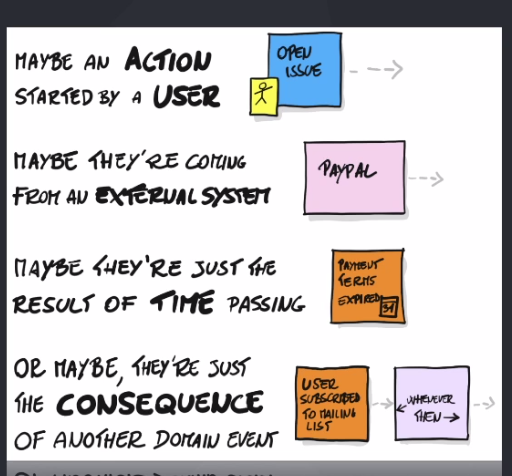 MAYBE AN ACTION
STARTED BY A USER
OPEN
ISSUE
MAYBE THEY'RE COMING
FROM AN EXTERNAL SYSTEM
PAYPAL
MAYBE THEY'RE JUST THE
RESULT OF TIME PASSING
PAYMENT
TERMS
EXPIRED
31
OR MAYBE, THEY'RE JUST
THE CONSEQUENCE
OF ANOTHER DOMAIN EVENT
USER
SUBSCRIBED
TO MAILING
LIST
WHENEVER
THEN